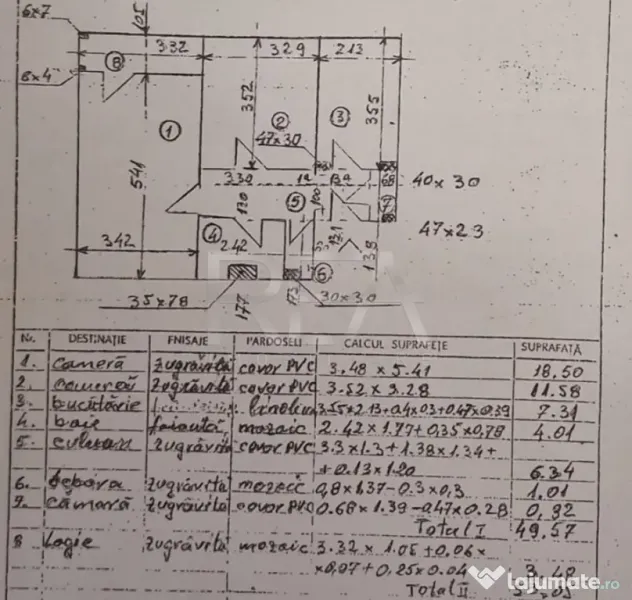 6x7
105
8x4
332
329
213
8
1
352
2
47x30
3
355
541
330
12
139
40 x 30
130
5
100
342
4
242
47x23
131
138
6
35x78
177
173
30x30
Nr. DESTINAȚIE FNISAJE PARDOSELI CALCUL SUPRAFEȚE SUPRAFAȚA
1. cameră zugrăvită covor PVC 3.48 x 5.41 18.50
2. cameră zugrăvită covor PVC 3.52 x 3.28 11.58
3 bucătărie linoleu 3.55x2.13+0,4x0.3+0,47x0.39 7.31
4. baie faianță mozaic 2.42 x 1.77+0,35x0,78 4.01
5. zugrăvită covor PVC 3.3x1.3+1.38x1.34+
+0.13x1.20 6.34
6. debara zugrăvită mozaic 0,8x1,37-0.3x0,3 1.01
7. cămară zugrăvită covor PVC 0.68x1.39-0,47x0.28 0,82
Total I 49.57
8 Logie zugrăvită mozaic 3.32 x 1.05+0,06x
x0,07+0,25x0.04 3.48
Total II
REA
lajumate.ro